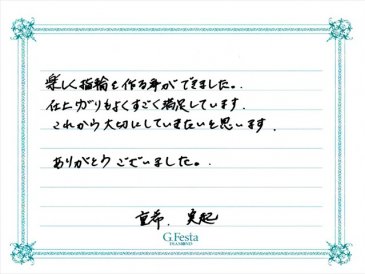 楽しく指輪を作る事ができました。
仕上がりもよくすごく満足しています。
これから大切にしていきたいと思います。
ありがとうございました。
G.Festa
DIAMOND